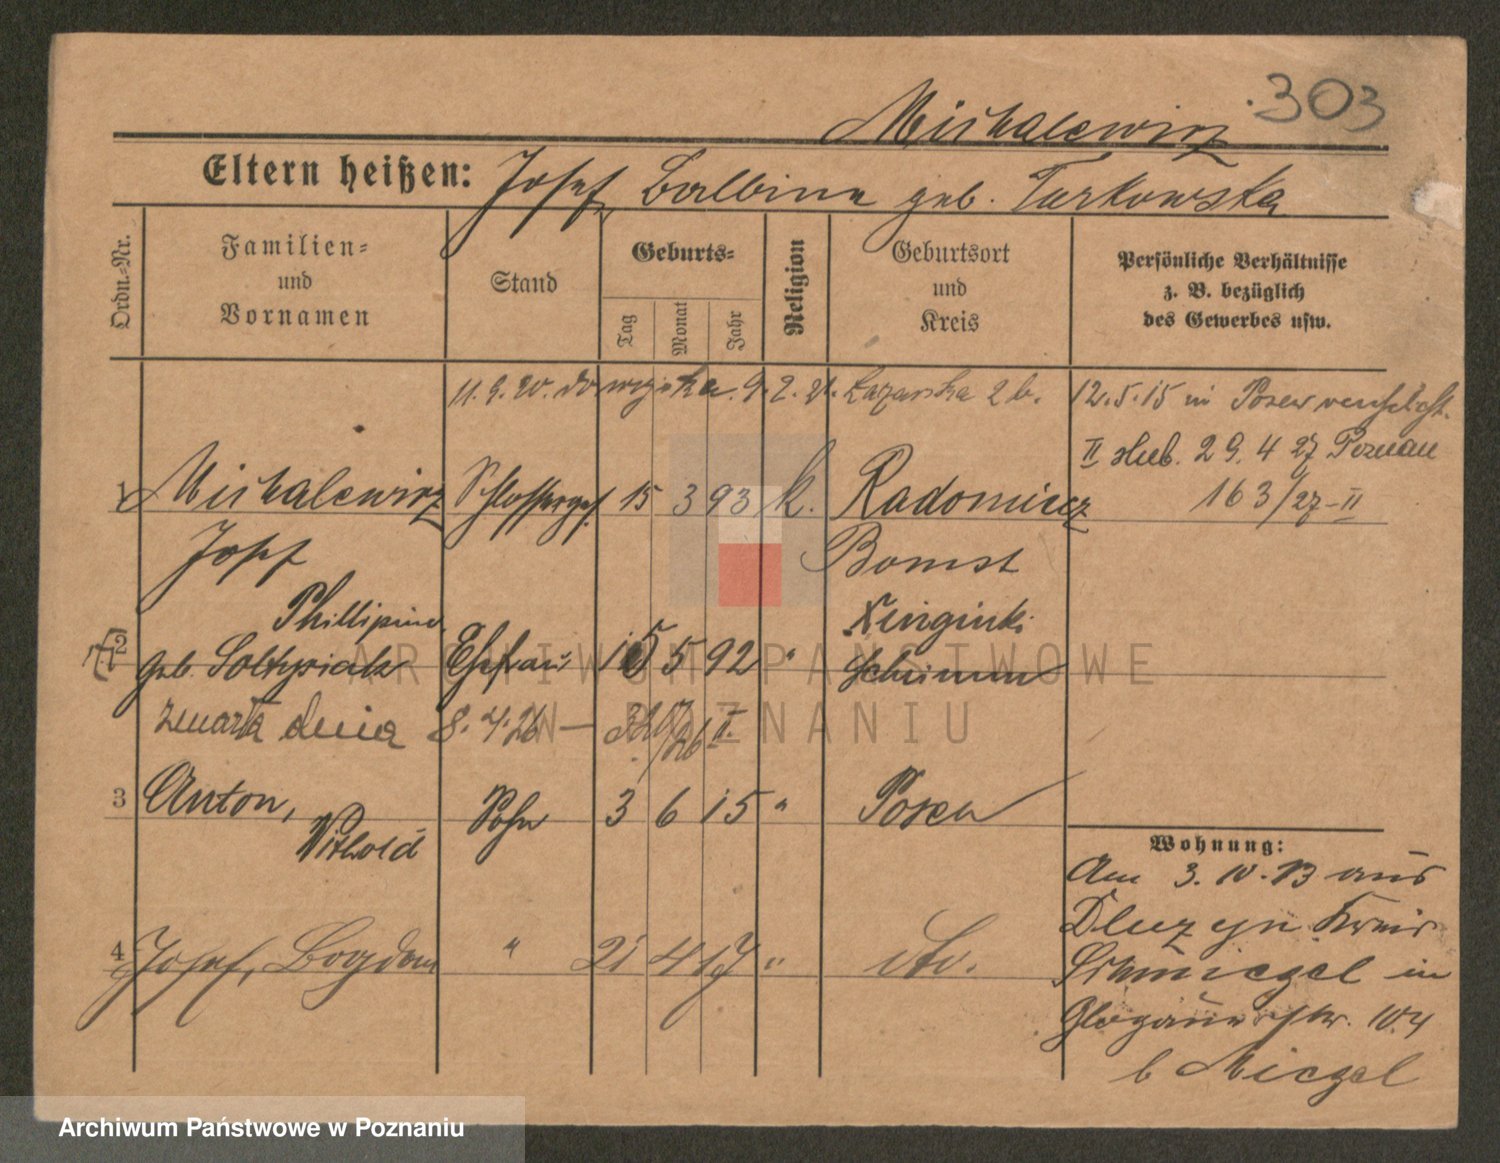 303
Michalewicz
Eltern heißen: Josef, Balbina geb. Turkowska
Ordn.-Nr.
Familien-
und
Vornamen
Stand
Geburts-
Tag
Monat
Jahr
Religion
Geburtsort
und
Kreis
Persönliche Verhältnisse
z. B. bezüglich
des Gewerbes usw.
11.9.20. 9.2.21. Łazarska 2 b. 12.5.15 in Posen
II slub. 29. 4 27 Poznan
1 Michalewicz Schlosserges. 15 3 93 k. Radomierz 163/27-II
Josef Bomst
Phillipine
2 geb. Soltysiak Ehefrau 15 5 92 " Xinginki
Schrimm
zmarła dnia 8.4.26 —
3 Anton, Sohn 3 6 15 " Posen
Withold
Wohnung:
Am 3.10.13 aus
Dluzyn Kreis
4 Josef, Bogdan " 21 4 17 " dto. Schmiegel in
Glogauerstr. 104
b Miegel
ARCHIWUM PAŃSTWOWE
W POZNANIU
Archiwum Państwowe w Poznaniu